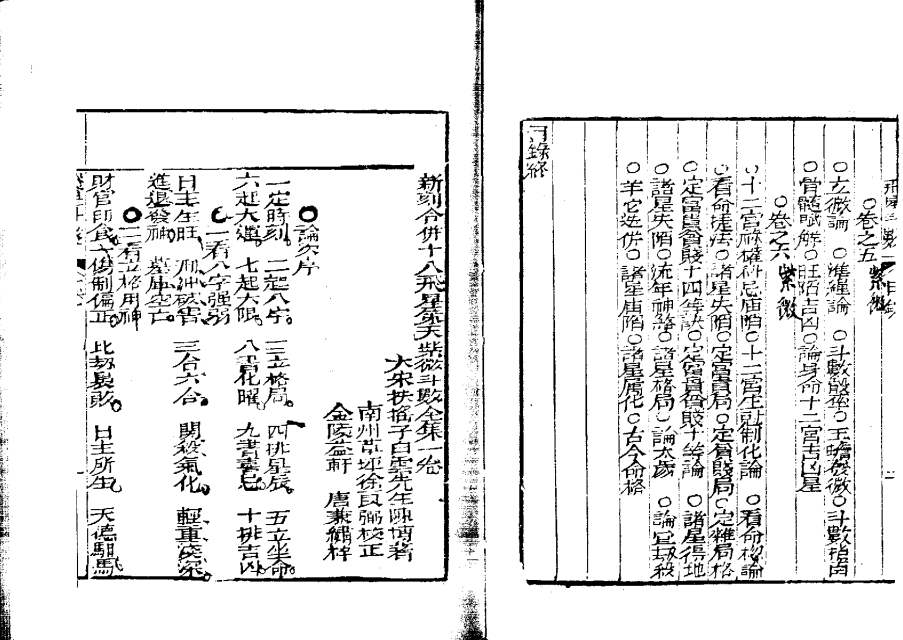 ○卷之五 紫微
○玄微論 ○準繩論 ○斗數彀率 ○玉蟾發微 ○斗數指南
○骨髓賦解 ○旺陷吉凶 ○論身命十二宮吉凶星
○卷之六 紫微
○十二宮祿權科忌廟陷 ○十二宮 制化論 ○看命 論
○看命捷法 ○諸星失陷 ○定富貴局 ○定貧賤局 ○定雜局格
○定富貴貧賤十四等訣 ○定富貴貧賤十等論 ○諸星得地
○諸星失陷 ○流年神 ○諸星格局 ○論太歲 ○論 殺
○羊它迭併 ○諸星廟陷 ○諸星屬化 ○古今命格
目錄終
新刻合併十八飛星策天紫微斗數全集一卷
大宋扶搖子白雲先生陳摶著
南州草坪徐良弼校正
金陵益軒 唐 繡梓
○論次序
一定時刻。二起八字。三立格局。四排星辰。五立坐命
六起大運。七起大限。八詳化曜。九書喜忌。十排吉凶。
○一看八字强弱
日主生旺。刑冲破害。三合六合。閑殺氣化。輕重淺深。
進退發神。墓庫空亡。
○二看立格用神
財官印食。六傷制偏正。比劫長敗。日主所生。天德馹馬。